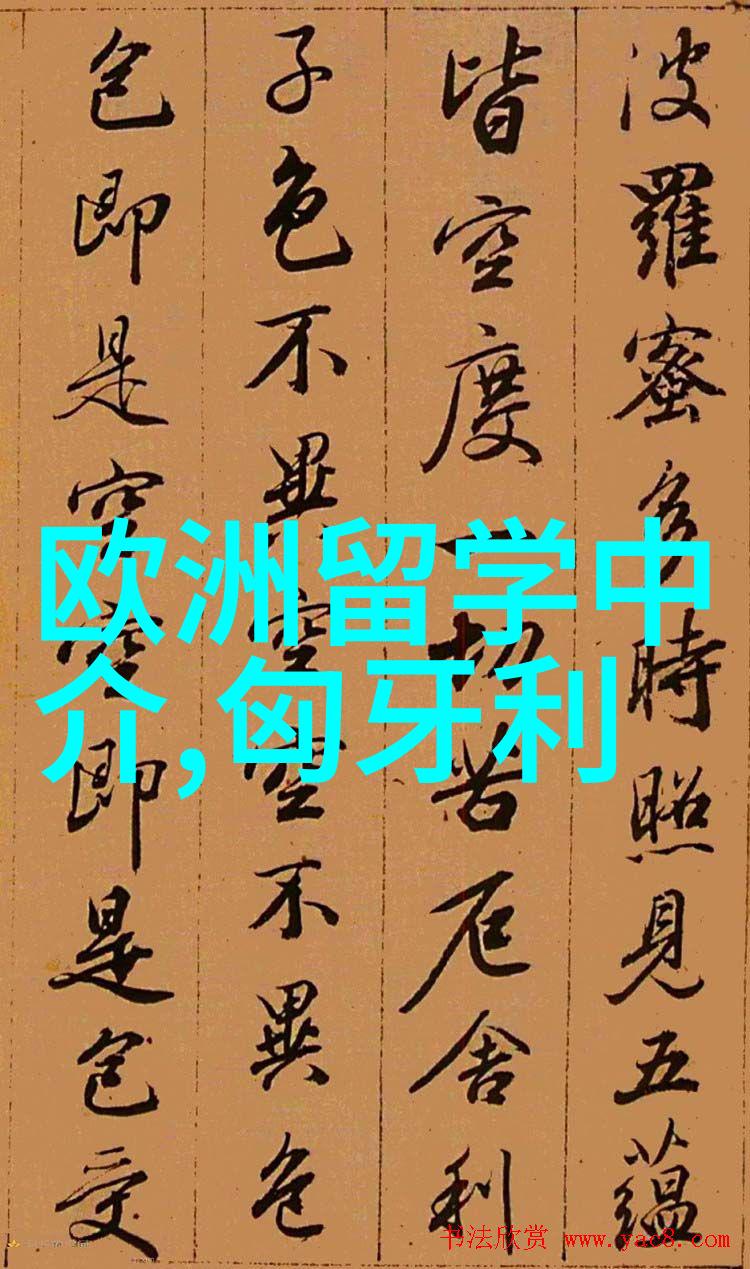 波羅蜜多時照見五蘊
皆空度一切苦厄舍利
子色不異空空不異色
色即是空空即是色受
欧洲留学中
介,匈牙利
书法欣赏 www.yac8.com